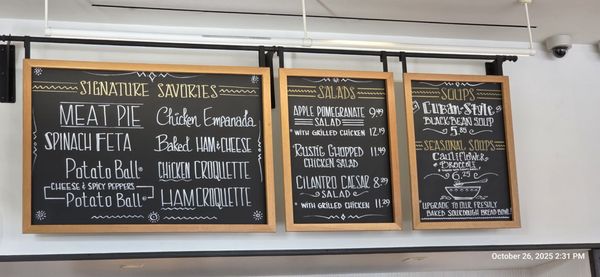 SIGNATURE SAVORIES
MEAT PIE
SPINACH FETA
Potato Ball®
CHEESE & SPICY PEPPERS
Potato Ball®
Chicken Empanada
Baked HAM & CHEESE
CHICKEN CROQUETTE
HAM CROQUETTE
SALADS
APPLE POMEGRANATE 9.99
SALAD
* WITH GRILLED CHICKEN 12.19
Rustic CHOPPED 11.99
CHICKEN SALAD
CILANTRO CAESAR 8.29
SALAD
* WITH GRILLED CHICKEN 11.29
SOUPS
Cuban-Style
BLACK BEAN SOUP
5.85
SEASONAL SOUPS
Cauliflower
BROCCOLI
6.25
UPGRADE TO OUR FRESHLY
BAKED SOURDOUGH BREAD BOWL
October 26, 2025 2:31 PM